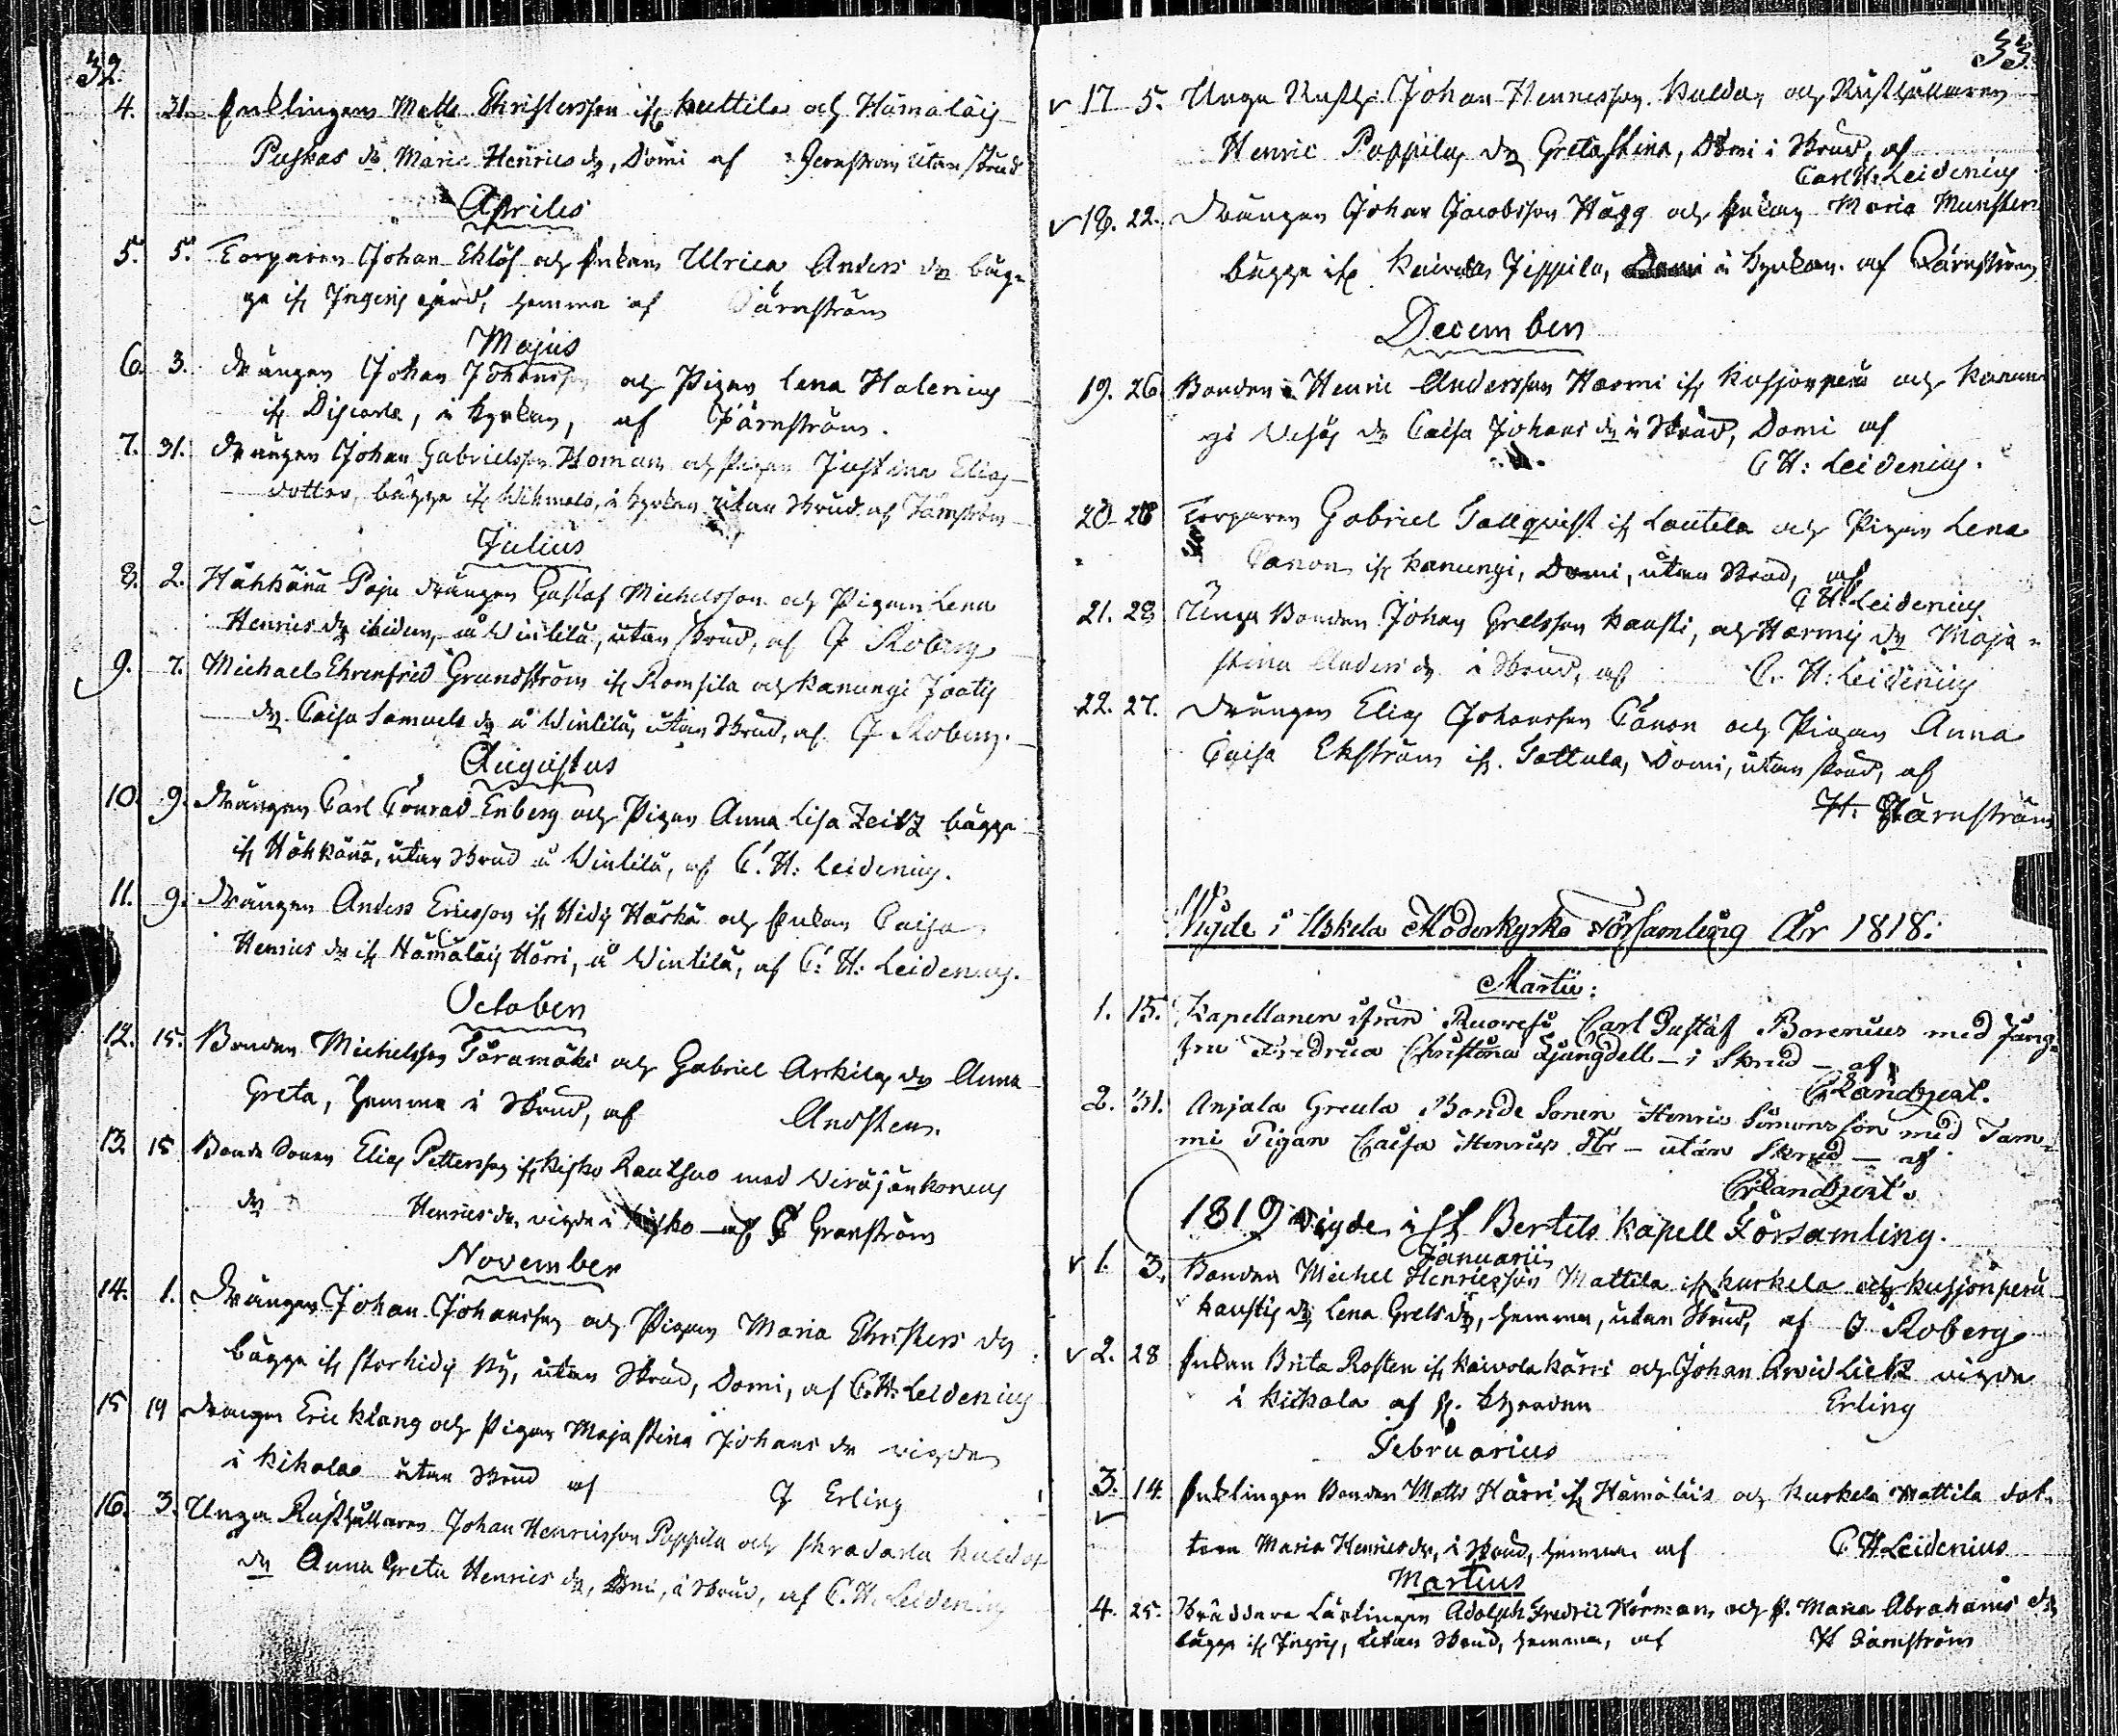 32.
4. 31. Enklingen Matts Christersson ifr. Kuttila och Hämäläis
Puskas dr. Maria Henrics dr, Domi af Jernström utan skrud
Aprilis
5. 5. Torparen Johan Eklöf och Enkan Ulrica Anders dr bäg-
ge ifr Ingeris gård, hemma af Järnström
Majus
6. 3. Drängen Johan Johansson och Pigan Lena Halenius
ifr Discarla, i Kyrkan, af Järnström.
7. 31. Drängen Johan Gabrielsson Homan och Pigan Justina Elias
dotter, bägge ifr Wihmalo, i Kyrkan utan Skrud af Järnström
Julius
8. 2. Hähkänä Paju Drängen Gustaf Michelsson och Pigan Lena
Henrics dr ibidem, å Wintilä, utan skrud, af J Roberg
9. 7. Michael Ehrenfrid Grundström ifr Romsila och Kanungi Jaatis
dr. Caisa Samuels dr å Wintilä, utan Skrud, af J Roberg.
Augustus
10. 9. Drängen Carl Conrad Enberg och Pigan Anna Lisa Zeitz bägge
ifr Hähkänä, utan Skrud å Wintilä, af C. H: Leidenius.
11. 9. Drängen Anders Ericsson ifr Hidis Härkä och Enkan Caisa
Henrics dr ifr Hämäläis Härri, å Wintilä, af C: H: Leidenius.
October
12. 15. Bonden Michelsson Töramäki och Gabriel Arkilas dr Anna
Greta, hemma i Skrud, af Andsten.
13. 15 Bonde Sonen Elias Pettersson ifr Kisko Rautsuo med Weräjänkorvas
dr Henrics dr, vigde i Kisko af C Granström
November
14. 1. Drängen Johan Johansson och Pigan Maria Christers dr
bägge ifr Storhidis By, utan Skrud, Domi, af C. H: Leidenius
15 19 Drängen Eric Klang och Pigan Maja Stina Johans dr vigde
i Kihala utan Skrud af J Erling
16. 3. Unga Rusthållaren Johan Henricsson Pappila och Skradarla Kuldas
dr Anna Greta Henrics dr, Domi, i Skrud, af C. H. Leidenius
33.
17 5. Unga Rusth. Johan Hennesson Kulda, och Rusthållaren
Henric Pappilas dr Greta Stina, Domi i Skrud, af
Carl H: Leidenius
18. 22. Drängen Johan Jacobsson Hägg och Enkan Maria Munster
bägge ifr Kaivola Jippila, i Kyrkan af Järnström
December
19. 26 Bonden Henric Andersson Harmi ifr Kusjonperä och Kanun
gi Uusis dr Caisa Johans dr i Skrud, Domi af
C H: Leidenius.
20 28 Torparen Gabriel Tallqvist ifr Lautela och Pigan Lena
Canon ifr Kanungi, Domi, utan Skrud, af
C H: Leidenius
21. 28 Unga Bonden Johan Grelsson Kausti, och Harmis dr Maja
Stina Anders dr i Skrud, af C. H: Leidenius
22. 27. Drängen Elias Johansson Canon och Pigan Anna
Caisa Ekström ifr. Tattula, Domi, utan skrud, af
H. Järnström
Wigde i Uskela Moderkyrko Församling År 1818:
Martii:
1. 15. Kapellanen ifrån Ruovesi Carl Gustaf Borenius med Jung-
frun Fredrica Christina Ljungdell – i Skrud – af
C Landzert.
2. 31. Anjala Greula Bonde Sonen Henric Simonsson med Tam-
mi Pigan Caisa Henrics dtr – utan Skrud – af
C Landzert.
1819 vigde i St Bertils Kapell Församling.
Januarii
1. 3. Bonden Michel Henricsson Mattila ifr Kurkela och Kusjonperä
Kaustis dr Lena Grels dr, hemma, utan Skrud, af J Roberg
2. 28 Enkan Brita Rosten ifr Kaivola Härri och Johan Arvid Lietz vigde
i Kickala af Erling
Februarius
3. 14. Enklingen Bonden Matts Härri ifr Hämäläis och Kurkela Mattila dot-
tren Maria Henrics dr, i Skrud, hemma af C H Leidenius
Martius
4. 25. Skräddare Lärlingen Adolph Fredric Körman och P. Maria Abrahams dr
bägge ifr Ingeris, utan Skrud, hemma, af H Järnström